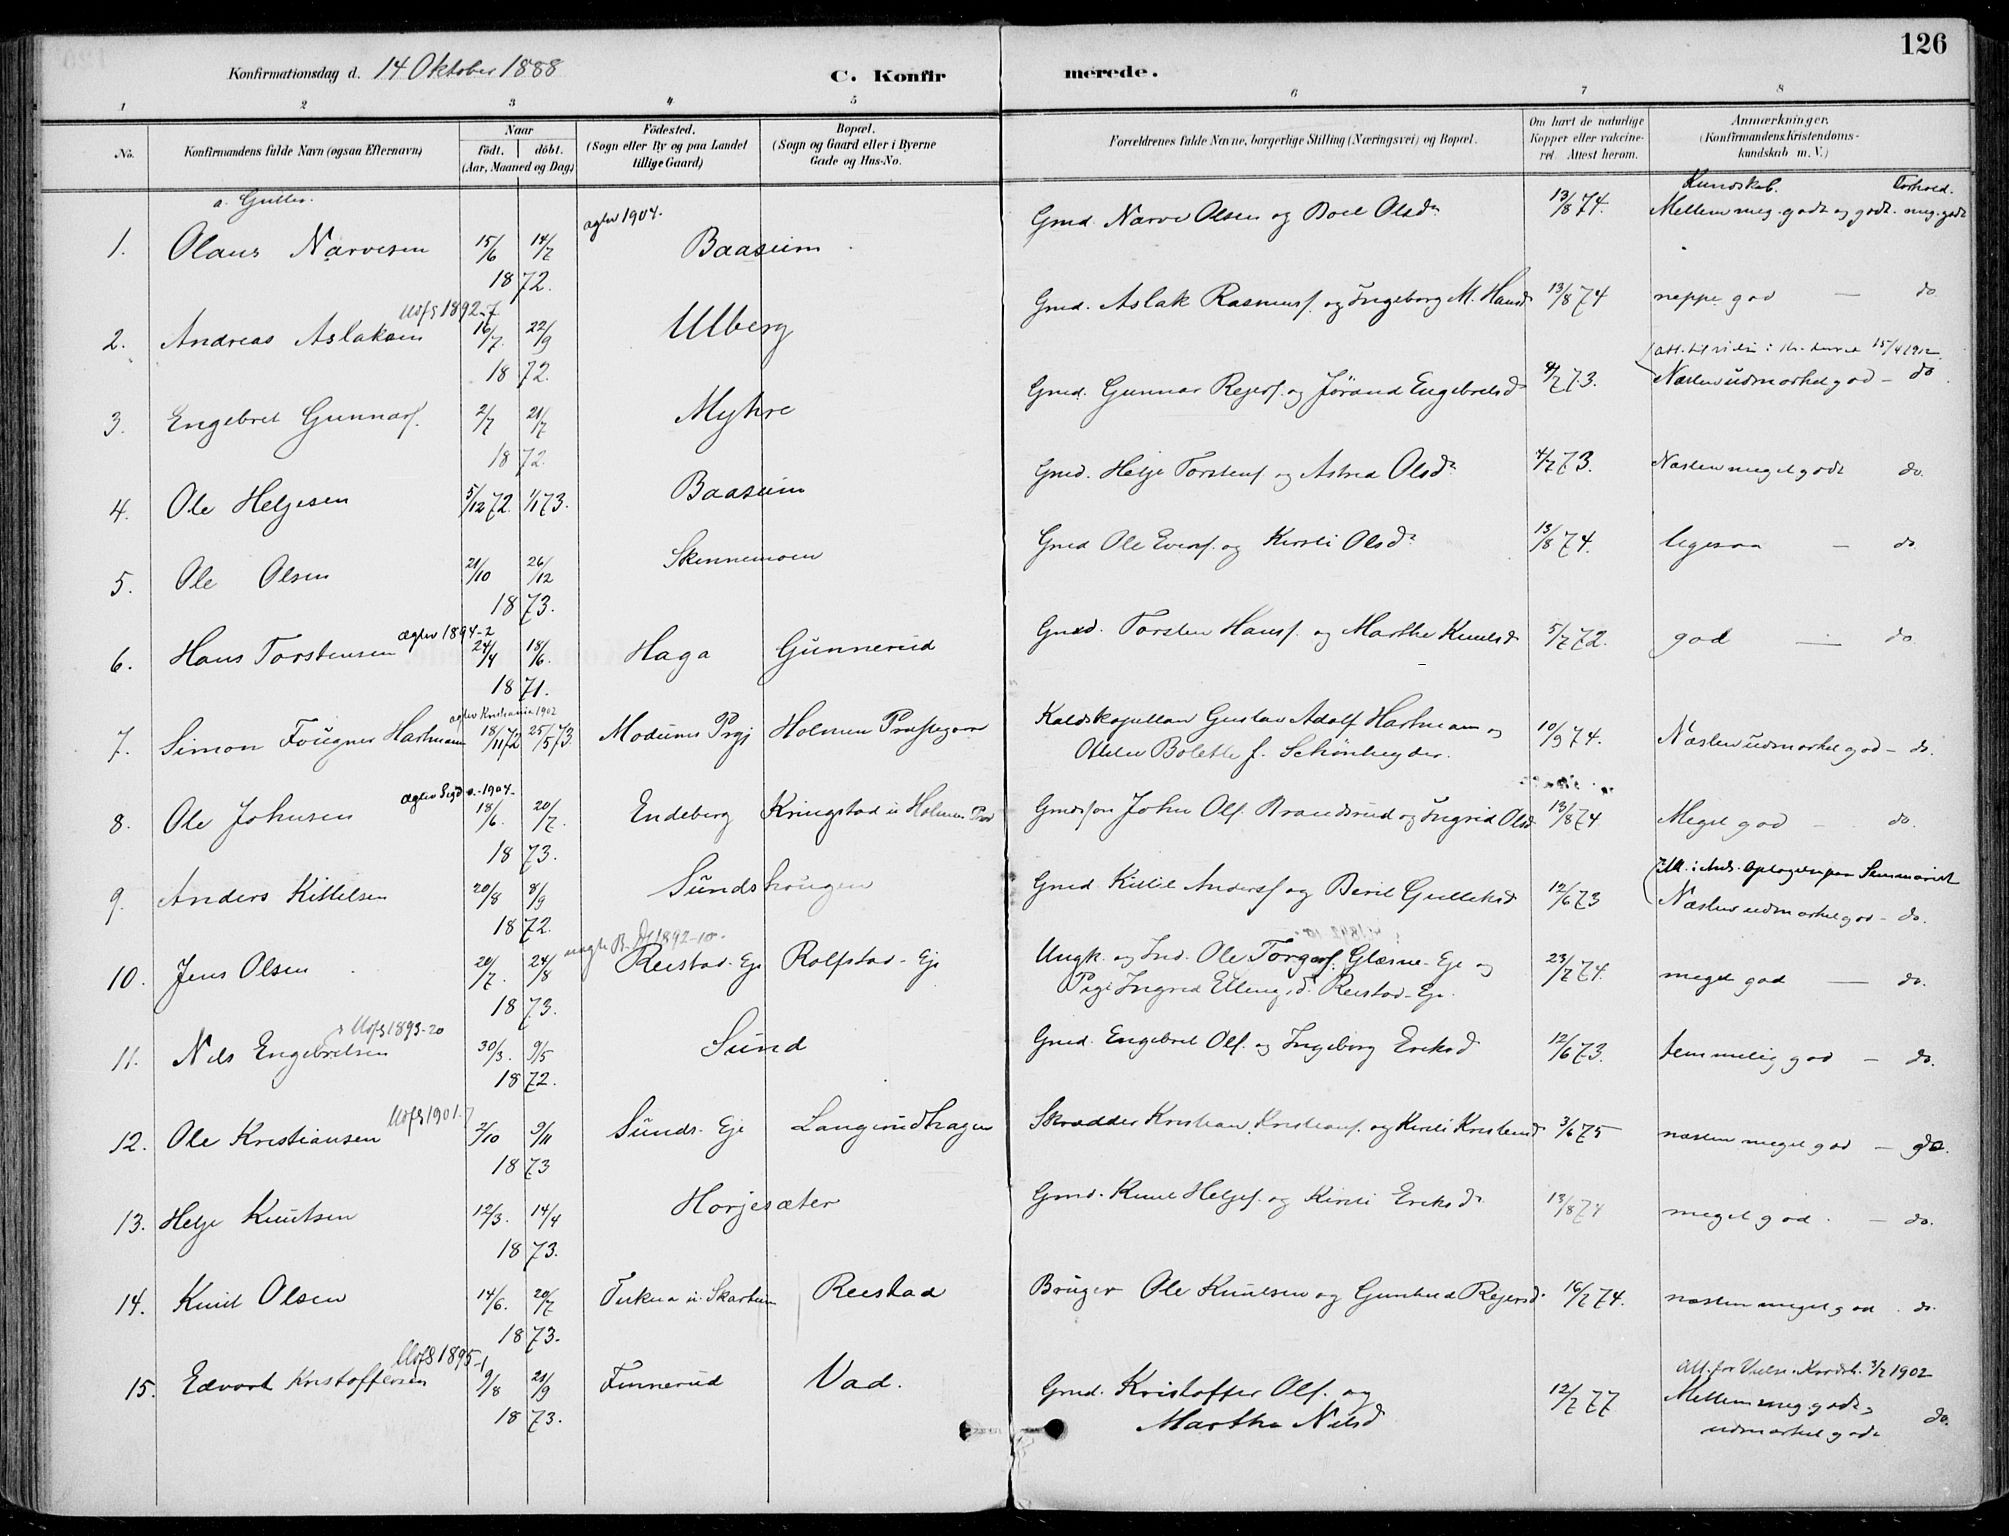 126
Konfirmationsdag d. 14 Oktober 1888
C. Konfirmerede.
1 2 3 4 5 6 7 8
No.
Konfirmandens fulde Navn (ogsaa Efternavn)
Naar
født. døbt.
(Aar, Maaned og Dag)
Fødested.
(Sogn eller By og paa Landet
tillige Gaard)
Bopæl.
(Sogn og Gaard eller i Byerne
Gade og Hus-No.
Forældrenes fulde Navne, borgerlige Stilling (Næringsvei) og Bopæl.
Om havt de naturlige
Kopper eller vakcine-
ret. Attest herom.
Anmærkninger.
(Konfirmandens Kristendoms-
kundskab m. V.)
a. Gutter. Kundskab. Forhold.
agtev 1904.
1. Olaus Narvesen 15/6 14/7 1872. Baasum Gmd. Narve Olsen og Boel Olsdr 13/8 74. Mellem meg. godt og godt. meg. godt
Udfl 1892-7
2. Andreas Aslaksen 16/7. 22/9 1872. Ulberg Gmd. Aslak Rasmusf. og Ingeborg M. Hansd 13/8 74 neppe god — do
15/4 1912
3. Engebret Gunnarf. 2/7 21/7 1872. Myhre Gmd. Gunnar Rejerf. og Jörand Engebretsd 4/7 73. Næsten udmærket god - do.
4. Ole Helgesen 5/12 72. 1/1 73. Baasum Gmd. Helge Torstenf og Astrid Olsdr 4/7 73. Næsten meget godt do.
5. Ole Olsen 21/10 26/12 1873. Skinnemoen Gmd Ole Evenf. og Kirsti Olsdr 13/8 74. ligesaa — do
agtev 1894-2
6. Hans Torstensen 24/4 18/6. 1871. Haga Gunnerud Gmd. Torsten Hansf. og Marthe Knutsd 5/7 72. god — do
agtev Kristiania 1902
7. Simon Fougner Hartmann 18/11 72 25/5 73. Modums Prgj Holmen Præstegaard Kaldskapellan Gustav Adolf Hartmann og
Bolette f. Schönheyder. 10/9 74. Næsten udmærket god - do.
agtev Sigd. 1904-
8. Ole Johnsen 18/6. 20/7. 1873. Endeberg Kringstad u. Holmen Gmdsfon John Olf. Brandsrud og Ingrid Olsd 13/8 74. Meget god - do.
9. Anders Kittelsen 20/8 8/9 1872. Sundshaugen Gmd. Kittil Andersf og Beret Gulliksd 12/6 73 Næsten udmærket god - do.
uægte 1892-10-
10. Jens Olsen 20/7. 24/8 1873. Reistad-Eje Rolfstad-Eje Ungk. og Ind. Ole Torgerf. Glesne-Eje og
Pige Ingrid Ellingsd. Reistad-Eje. 23/7 74. meget god — do.
Udfl 1893-20
11. Nils Engebretsen 30/3. 9/5 1872. Sund Gmd. Engebret Olf. og Ingeborg Eriksd 12/6 73. temmelig god - do.
Udfl 1901-7
12. Ole Kristiansen 2/10 9/11 1873 Sunds-Eje Langerudhagen Skrædder Kristian Kristianf. og Kirsti Kristensd 3/6 75 næsten meget god - do.
13. Helge Knutsen 12/3. 14/4 1873. Horjesæter Gmd. Knut Helgef. og Kirsti Eriksd 13/8 74 meget god. - do.
14. Knut Olsen 14/6. 20/7 1873. Reistad Bruger Ole Knutsen og Gunhild Rejersd. 16/7 74. næsten meget god. do.
Udfl 1895-1
Att. for Vielse 3/7 1902
15. Edvart Kristoffersen 9/8 21/9 1873. Finnerud Vad. Gmd. Kristoffer Olf. og
Marthe Nilsd 12/7 77 Mellem meg. godt og
udmærket godt do.